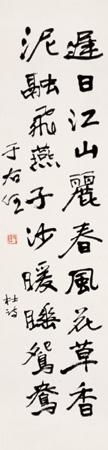 遲日江山麗春風花草香
泥融飛燕子沙暖睡鴛鴦
杜詩
于右任